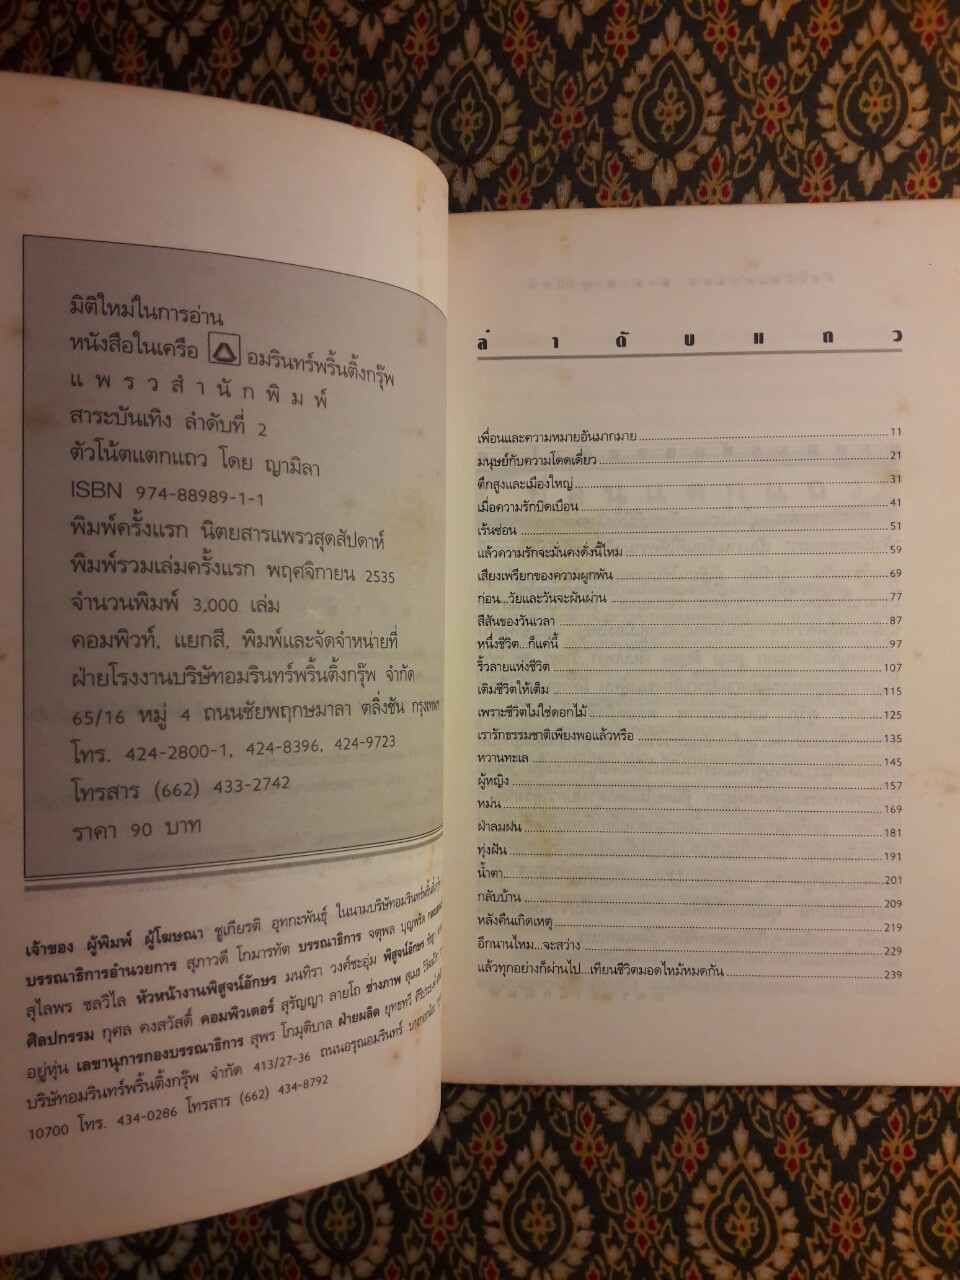 มิติใหม่ในการอ่าน
หนังสือในเครือ อมรินทร์พริ้นติ้งกรุ๊พ
แ พ ร ว สำ นั ก พิ ม พ์
สาระบันเทิง ลำดับที่ 2
ตัวโน้ตแตกแถว โดย ญามิลา
ISBN 974-88989-1-1
พิมพ์ครั้งแรก นิตยสารแพรวสุดสัปดาห์
พิมพ์รวมเล่มครั้งแรก พฤศจิกายน 2535
จำนวนพิมพ์ 3,000 เล่ม
คอมพิวท์, แยกสี, พิมพ์และจัดจำหน่ายที่
ฝ่ายโรงงานบริษัทอมรินทร์พริ้นติ้งกรุ๊พ จำกัด
65/16 หมู่ 4 ถนนชัยพฤกษมาลา ตลิ่งชัน กรุงเทพฯ
โทร. 424-2800-1, 424-8396, 424-9723
โทรสาร (662) 433-2742
ราคา 90 บาท
เจ้าของ ผู้พิมพ์ ผู้โฆษณา ชูเกียรติ อุทกะพันธุ์ ในนามบริษัทอมรินทร์พริ้นติ้ง
บรรณาธิการอำนวยการ สุภาวดี โกมารทัต บรรณาธิการ จตุพล บุญพรัด
สุไลพร ชลวิไล หัวหน้างานพิสูจน์อักษร มนทิรา วงศ์ชะอุ่ม พิสูจน์อักษร
ศิลปกรรม กุศล คงสวัสดิ์ คอมพิวเตอร์ สุรัญญา ลายโถ ช่างภาพ
อยู่หุ่น เลขานุการกองบรรณาธิการ สุพร โกมุติบาล ฝ่ายผลิต ยุทธทวี
บริษัทอมรินทร์พริ้นติ้งกรุ๊พ จำกัด 413/27-36 ถนนอรุณอมรินทร์
10700 โทร. 434-0286 โทรสาร (662) 434-8792
ลำ ดั บ แ ถ ว
เพื่อนและความหมายอันมากมาย 11
มนุษย์กับความโดดเดี่ยว 21
ตึกสูงและเมืองใหญ่ 31
เมื่อความรักบิดเบือน 41
เร้นซ่อน 51
แล้วความรักจะมั่นคงดั่งนี้ไหม 59
เสียงเพรียกของความผูกพัน 69
ก่อน...วัยและวันจะผันผ่าน 77
สีสันของวันเวลา 87
หนึ่งชีวิต...ก็แค่นี้ 97
ริ้วลายแห่งชีวิต 107
เติมชีวิตให้เต็ม 115
เพราะชีวิตไม่ใช่ดอกไม้ 125
เรารักธรรมชาติเพียงพอแล้วหรือ 135
หวานทะเล 145
ผู้หญิง 157
หม่น 169
ฝ่าลมฝน 181
ทุ่งฝัน 191
น้ำตา 201
กลับบ้าน 209
หลังคืนเกิดเหตุ 219
อีกนานไหม...จะสว่าง 229
แล้วทุกอย่างก็ผ่านไป...เทียนชีวิตมอดไหม้หมดกัน 239